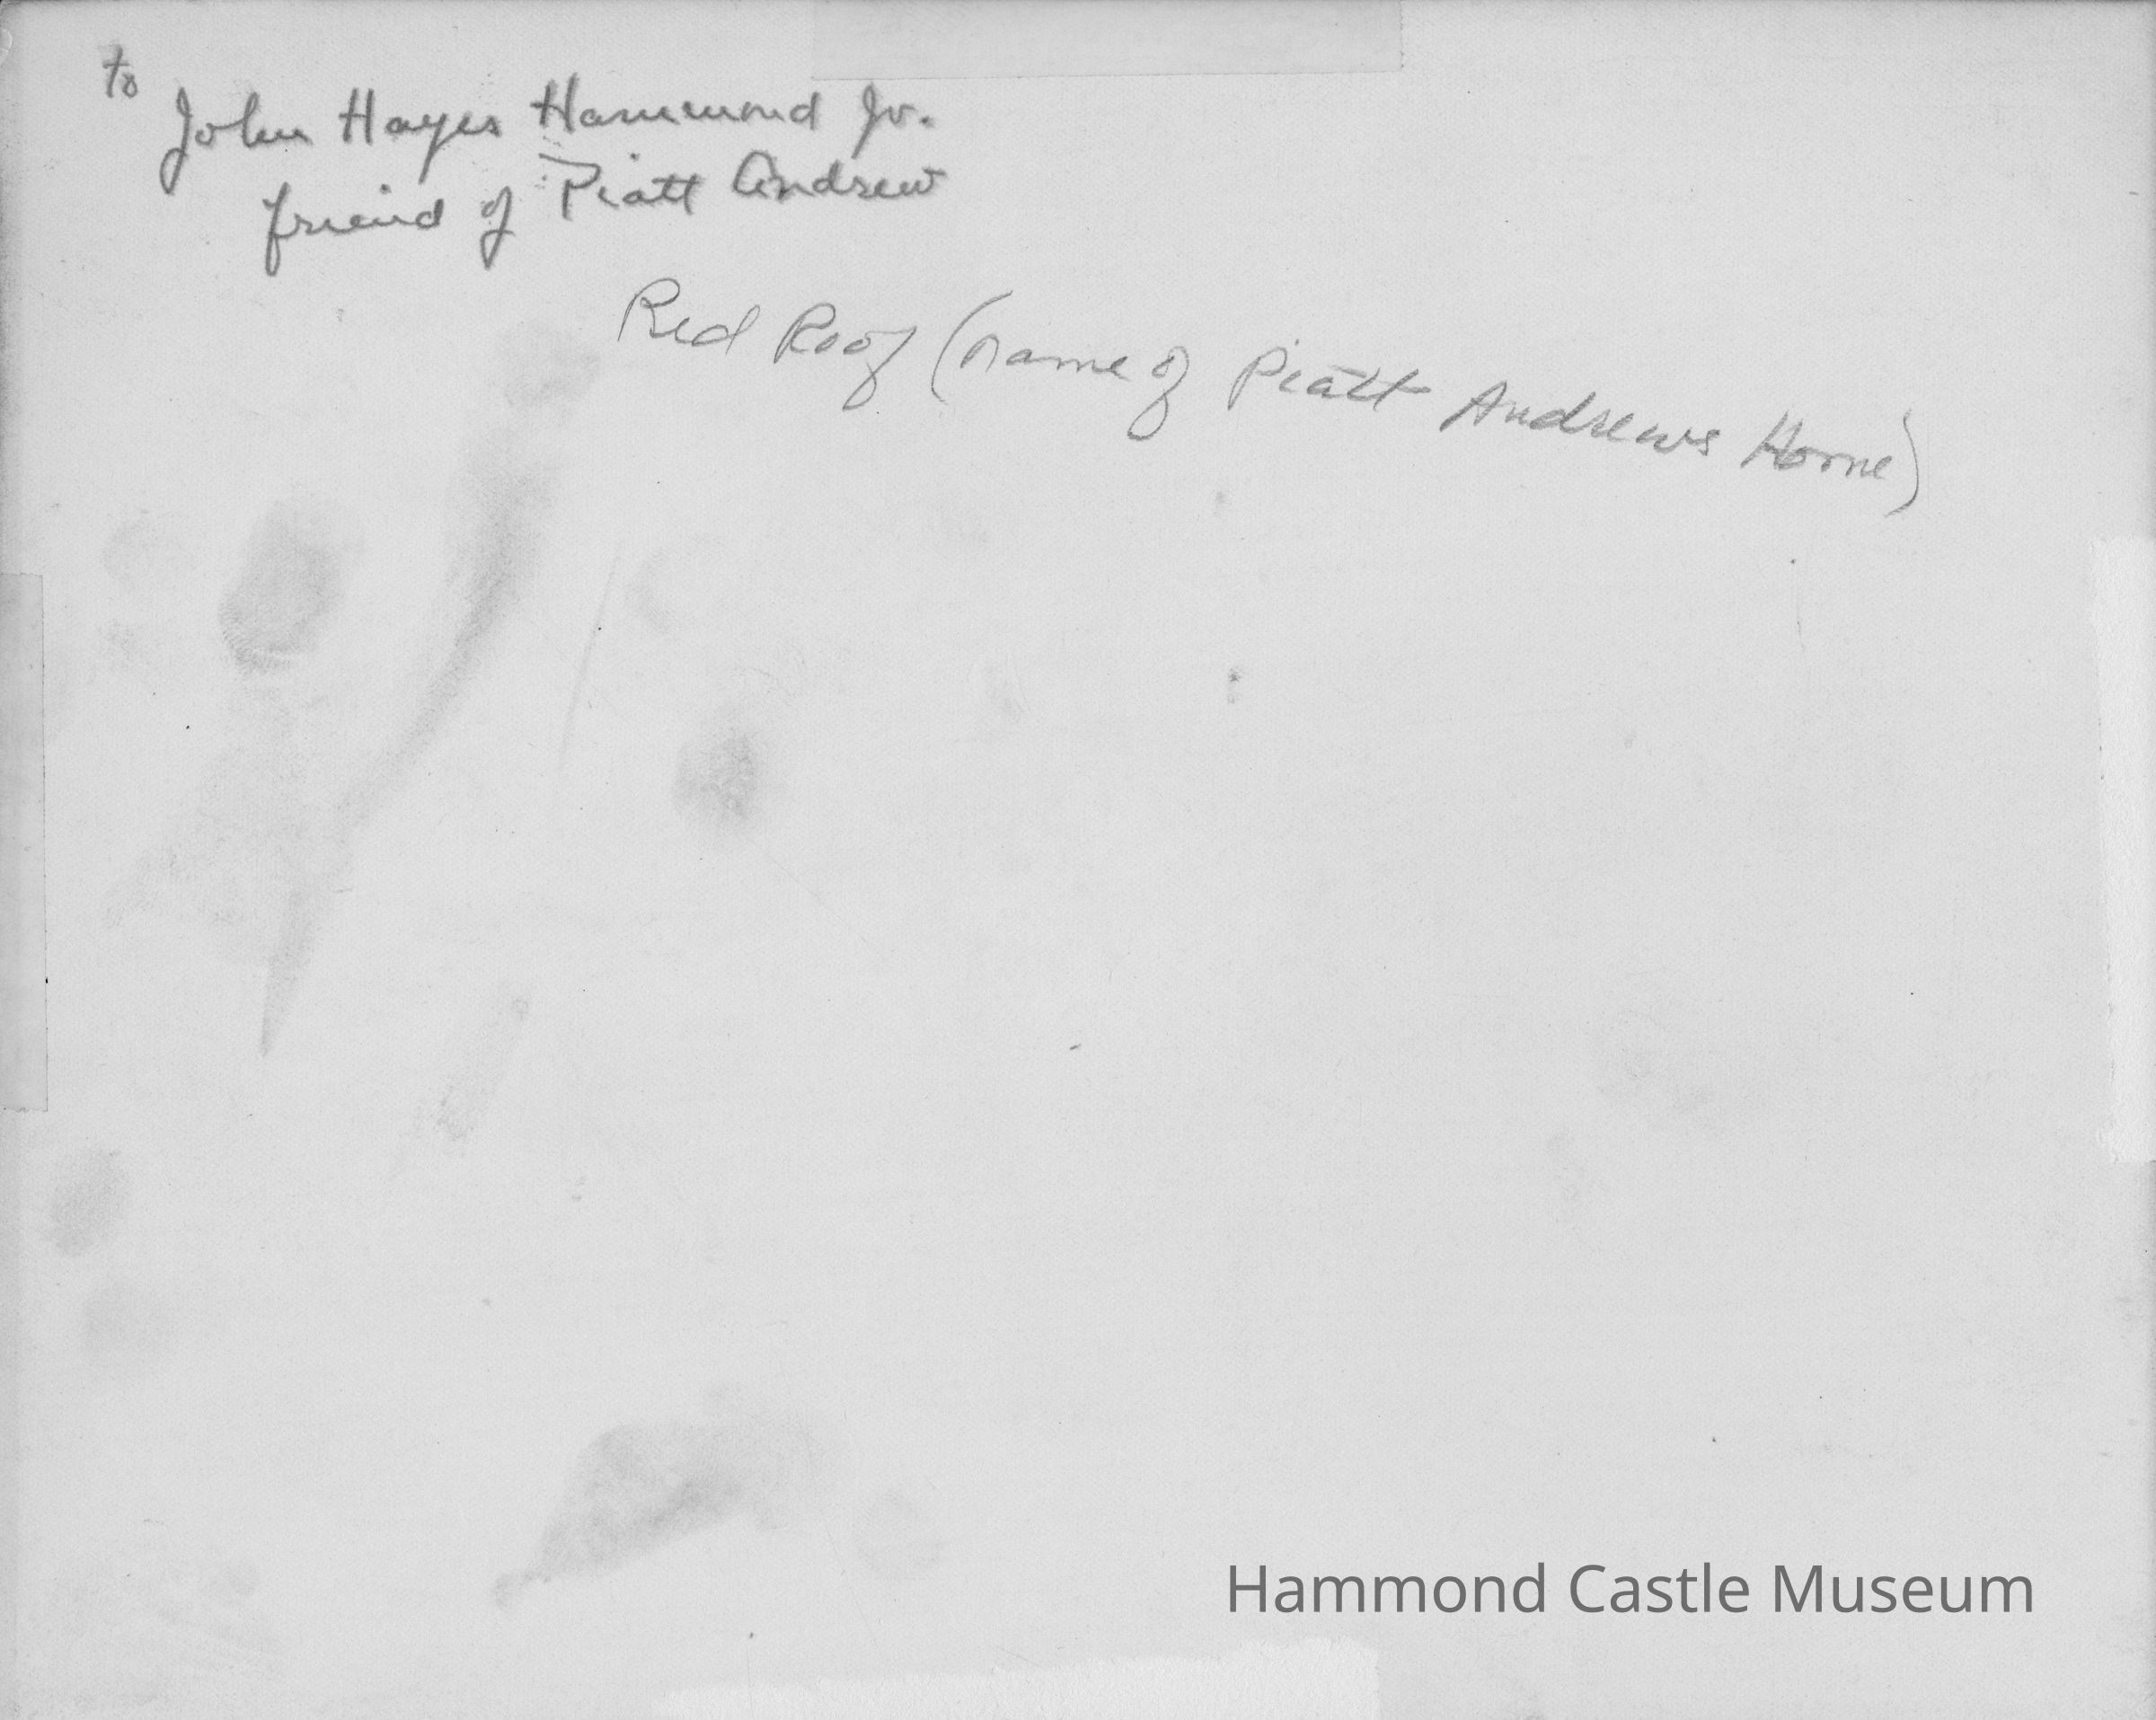 to
John Hayes Hammond Jr.
friend of Piatt Andrew
Red Roof (name of Piatt Andrews Home)
Hammond Castle Museum